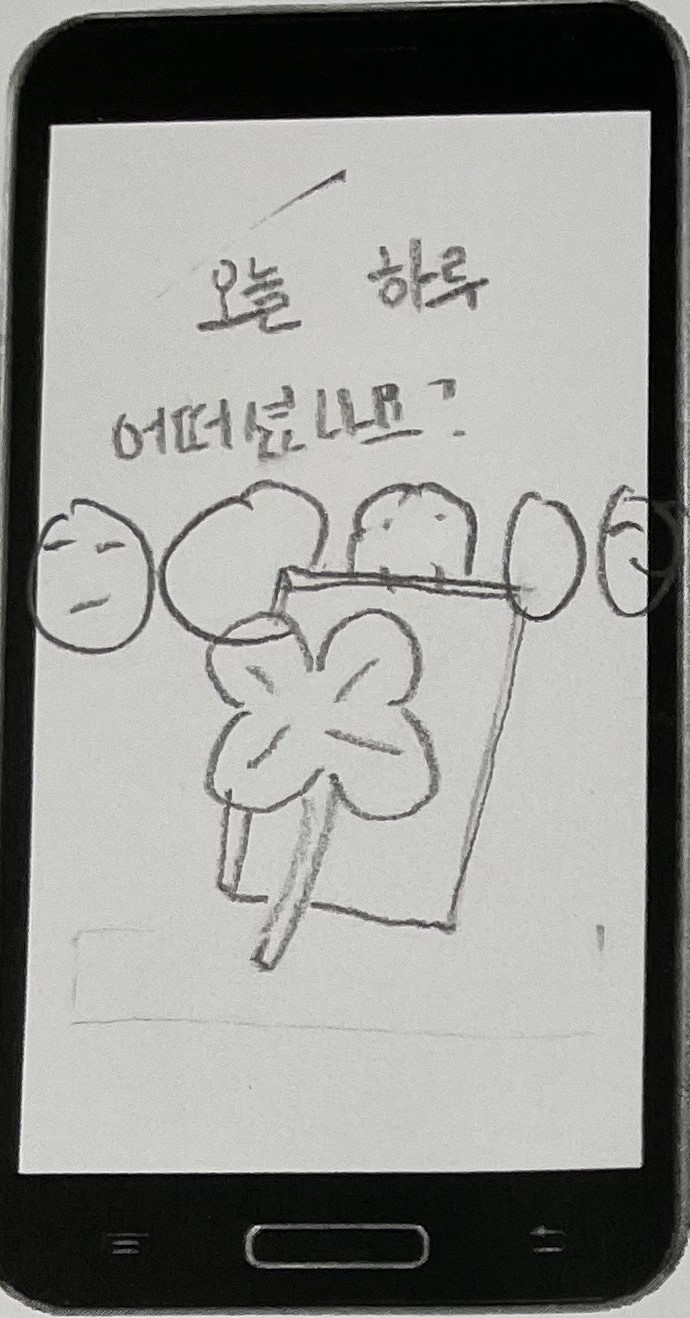 오늘 하루
어떠셨나요?